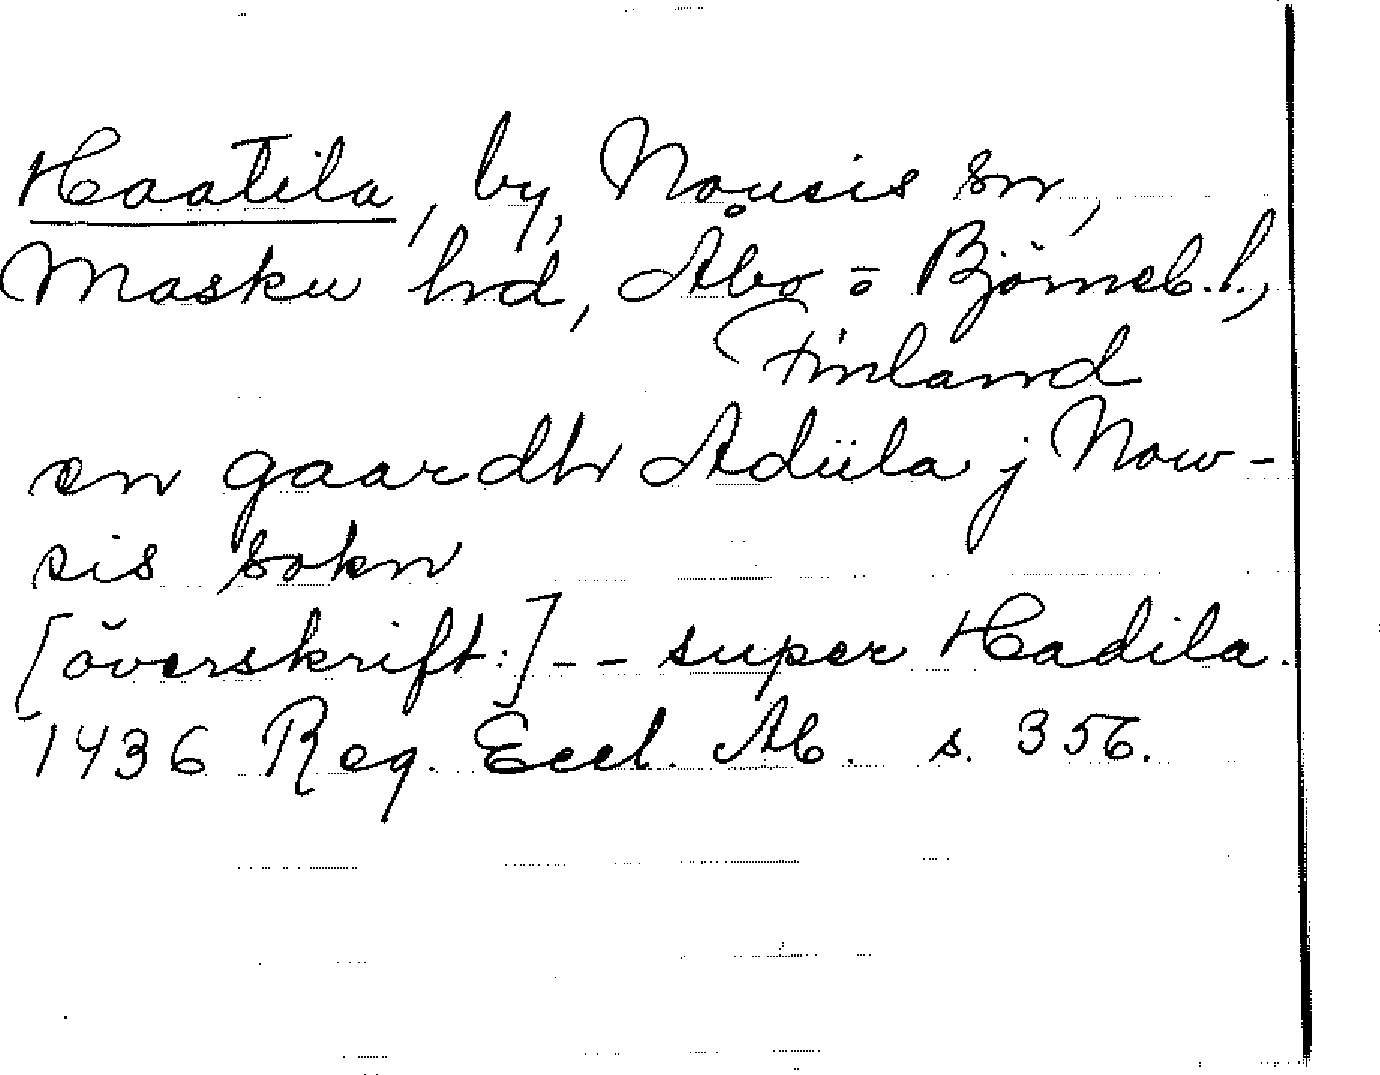 Haatila, by, Nousis sn,
Masku hrd, Åbo = Björneb. l.,
Finland
en gaardh Adiila j Now-
sis sokn
[överskrift:] - - super Hadila.
1436 Reg. Eccl. Ab. s. 356.